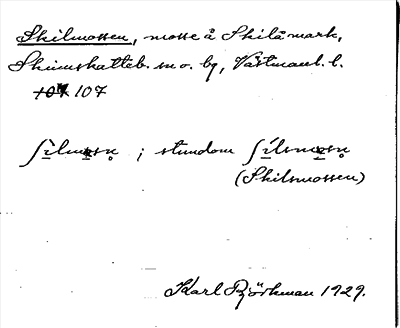 Skilmossen, mosse å Skilå mark,
Skinnskatteb. sn o. bg, Västmanl. l.
107 107
; stundom
(Skilsmossen)
Karl Björkman 1929.